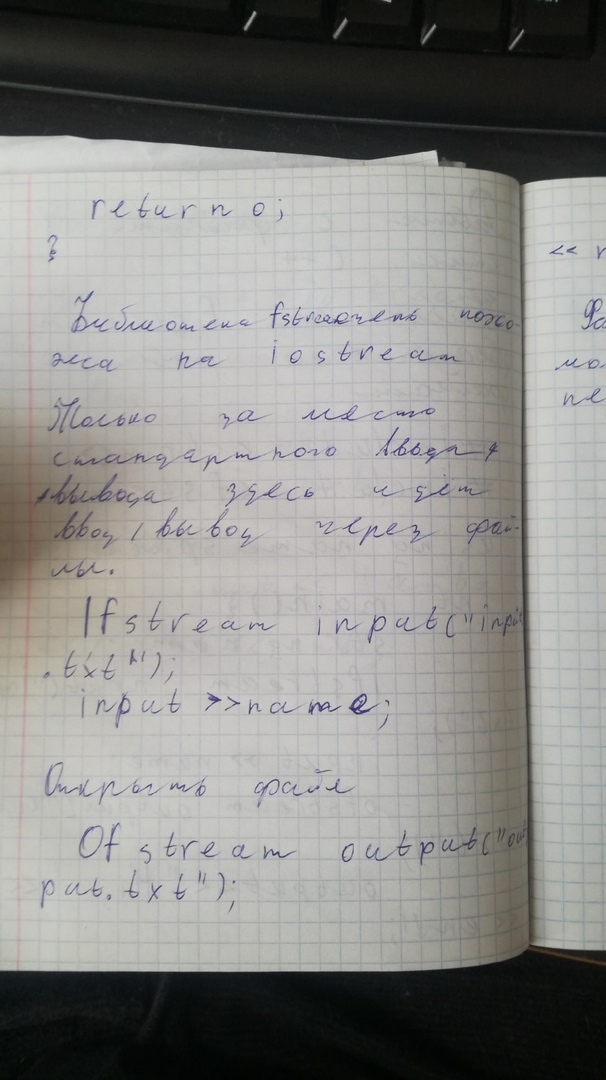 return 0;
}
Библиотека fstream очень похо-
жа на iostream
Только за место
стандартного ввода и
вывода здесь идёт
ввод/вывод через фай-
лы.
Ifstream input("input
.txt");
input >>name;
Открыть файл
Ofstream output("out
put.txt");
<<